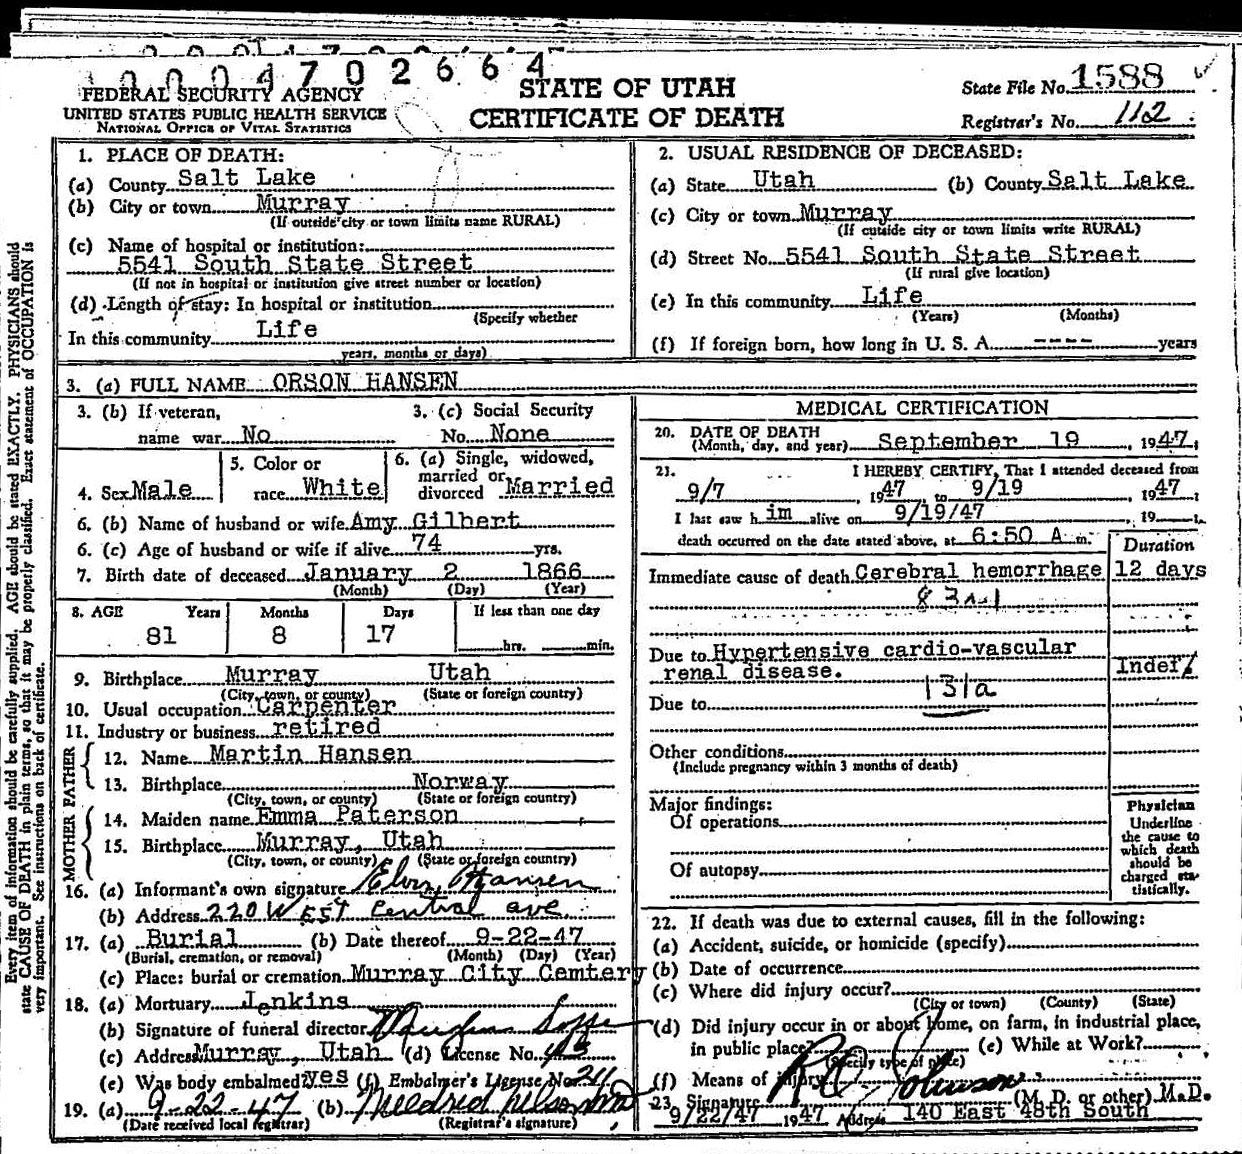 0004702664
FEDERAL SECURITY AGENCY
UNITED STATES PUBLIC HEALTH SERVICE
NATIONAL OFFICE OF VITAL STATISTICS
STATE OF UTAH
CERTIFICATE OF DEATH
State File No. 1588
Registrar's No. 112
1. PLACE OF DEATH:
(a) County Salt Lake
(b) City or town Murray
(If outside city or town limits name RURAL)
(c) Name of hospital or institution:
5541 South State Street
(If not in hospital or institution give street number or location)
(d) Length of stay: In hospital or institution
(Specify whether
In this community Life
years, months or days)
2. USUAL RESIDENCE OF DECEASED:
(a) State Utah (b) County Salt Lake
(c) City or town Murray
(If outside city or town limits write RURAL)
(d) Street No. 5541 South State Street
(If rural give location)
(e) In this community Life
(Years) (Months)
(f) If foreign born, how long in U. S. A. ---- years
3. (a) FULL NAME ORSON HANSEN
3. (b) If veteran,
name war No
3. (c) Social Security
No. None
4. Sex Male
5. Color or
race White
6. (a) Single, widowed,
married or
divorced Married
6. (b) Name of husband or wife Amy Gilbert
6. (c) Age of husband or wife if alive 74 yrs.
7. Birth date of deceased January 2 1866
(Month) (Day) (Year)
8. AGE Years Months Days If less than one day
81 8 17 hrs. min.
9. Birthplace Murray Utah
(City, town, or county) (State or foreign country)
10. Usual occupation Carpenter
11. Industry or business retired
FATHER
12. Name Martin Hansen
13. Birthplace Norway
(City, town, or county) (State or foreign country)
MOTHER
14. Maiden name Emma Paterson
15. Birthplace Murray, Utah
(City, town, or county) (State or foreign country)
16. (a) Informant's own signature Elvin Hansen
(b) Address 220 West Central ave.
17. (a) Burial (b) Date thereof 9-22-47
(Burial, cremation, or removal) (Month) (Day) (Year)
(c) Place: burial or cremation Murray City Cemtery
18. (a) Mortuary Jenkins
(b) Signature of funeral director
(c) Address Murray, Utah (d) License No.
(e) Was body embalmed? yes (f) Embalmer's License No.
19. (a) 9-22-47 (b) Mildred
(Date received local registrar) (Registrar's signature)
MEDICAL CERTIFICATION
20. DATE OF DEATH
(Month, day, and year) September 19, 1947;
21. I HEREBY CERTIFY, That I attended deceased from
9/7, 1947, to 9/19, 1947;
I last saw h im alive on 9/19/47, 19
death occurred on the date stated above, at 6:50 A m.
Duration
Immediate cause of death Cerebral hemorrhage 12 days
Due to Hypertensive cardio-vascular
renal disease. Indef
131a
Due to
Other conditions
(Include pregnancy within 3 months of death)
Major findings:
Of operations
Of autopsy
Physician
Underline
the cause to
which death
should be
charged sta-
tistically.
22. If death was due to external causes, fill in the following:
(a) Accident, suicide, or homicide (specify)
(b) Date of occurrence
(c) Where did injury occur?
(City or town) (County) (State)
(d) Did injury occur in or about home, on farm, in industrial place,
in public place? (e) While at Work?
(Specify type of place)
(f) Means of injury
23. Signature (M. D. or other) M.D.
9/22/47 1947 Address 140 East 48th South
Every item of information should be carefully supplied. AGE should be stated EXACTLY. PHYSICIANS should
state CAUSE OF DEATH in plain terms, so that it may be properly classified. Exact statement of OCCUPATION is
very important. See instructions on back of certificate.